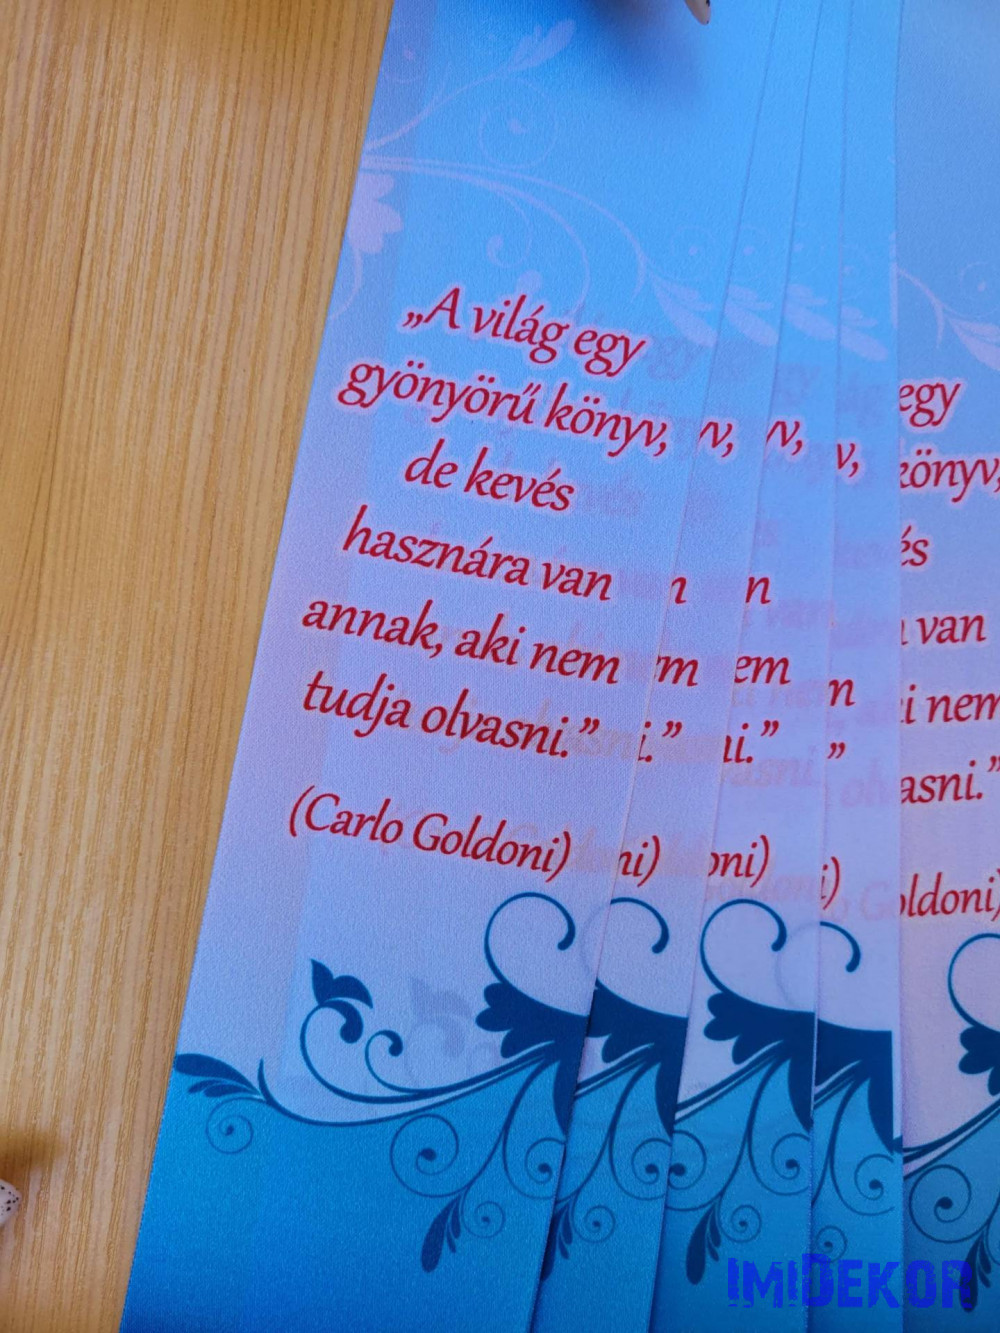 „A világ egy
gyönyörű könyv,
de kevés
hasznára van
annak, aki nem
tudja olvasni.”
(Carlo Goldoni)
yv,
n
em
i.”
ni)
v,
n
em
ni.”
oni)
v,
m
”
i)
egy
könyv,
és
van
ki nem
olvasni.”
Goldoni)
IMIDEKOR